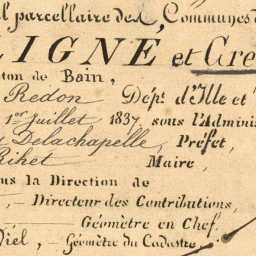 l parcellaire de Communes d
IGNÉ, et Gre
ton de Bain,
Redon Dépt. d'Ille et
1er Juillet 1837, sous l'Adminis
Delachapelle, Préfet,
Rihet Maire,
us la Direction de
, – Directeur des Contributions,
Géomètre en Chef.
Diel, – Géomètre du Cadastre.